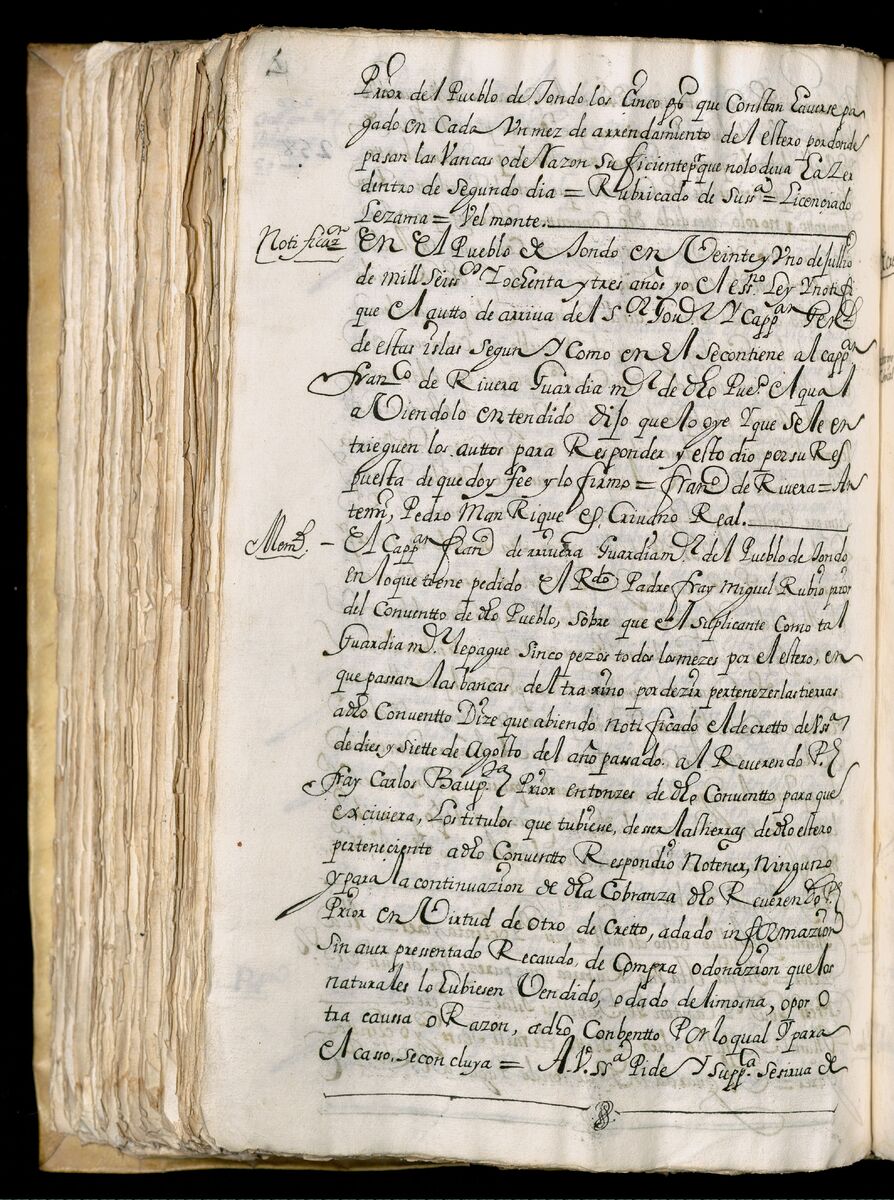 Prior del Pueblo de Tondo los Cinco ps que Constan Éauerse pa
gado en Cada Vn mez de arrendamiento del estero por donde
pasan las Vancas o de Razon suficiente pr que no lo deua Éazer
dentro de segundo dia = Rubricado de Sussa = Licenciado
Lezama = Velmonte.
Notificaon En El Pueblo de Tondo en Veinte y Vno de Jullio
de mill Seissos Y ochenta y tres años yo el essno Ley Y notifi
que El autto de arriva del Sor Gouor Y Cappan Genl
de estas islas segun Y Como en El se contiene al cappan
Franco de Rivera Guardia mor de dho Pueo El qual
aViendolo entendido dijo que lo oye Y que se le en
trieguen los auttos para Responder y esto dio por su Res
puesta de que doy fee y lo firmo = Franco de Rivera = An
temi, Pedro ManRique es. Criuano Real.
Meml. - El Cappan Franco de rriuera Guardia mor del Pueblo de Tondo
En lo que tiene pedido El Rdo Padre fray Miguel Rubio prior
del Conuentto de dho Pueblo, sobre que El suplicante Como tal
Guardia mor le pague Sinco pezos todos los mezes por el estero, en
que passan las bancas del tra xino por dezir pertenezer las tierras
a dho Conuentto Dize que abiendo notificado el decretto de Vssa
de dies y siette de Agosto del año passado. al Reverendo Pe
fray Carlos Baupta Prior entonzes de dho Conuentto para que
exciviera, Los titulos que tubiesse, de ser las tierras de dho estero
perteneciente a dho Conuentto Respondio No tener, Ninguno
Y para la continuazion de dha Cobranza dho Reuerendo Pe
Prior en Virtud de otro de Cretto, a dado informazion
sin auer presentado Recaudo, de Compra o donazion que los
naturales lo Éubiesen Vendido, o dado de limosna, o por O
tra caussa o Razon, a dho, Conbentto Por lo qual Y para
El casso, se con cluya = A. V. ssa Pide Y suppca Se sirua de